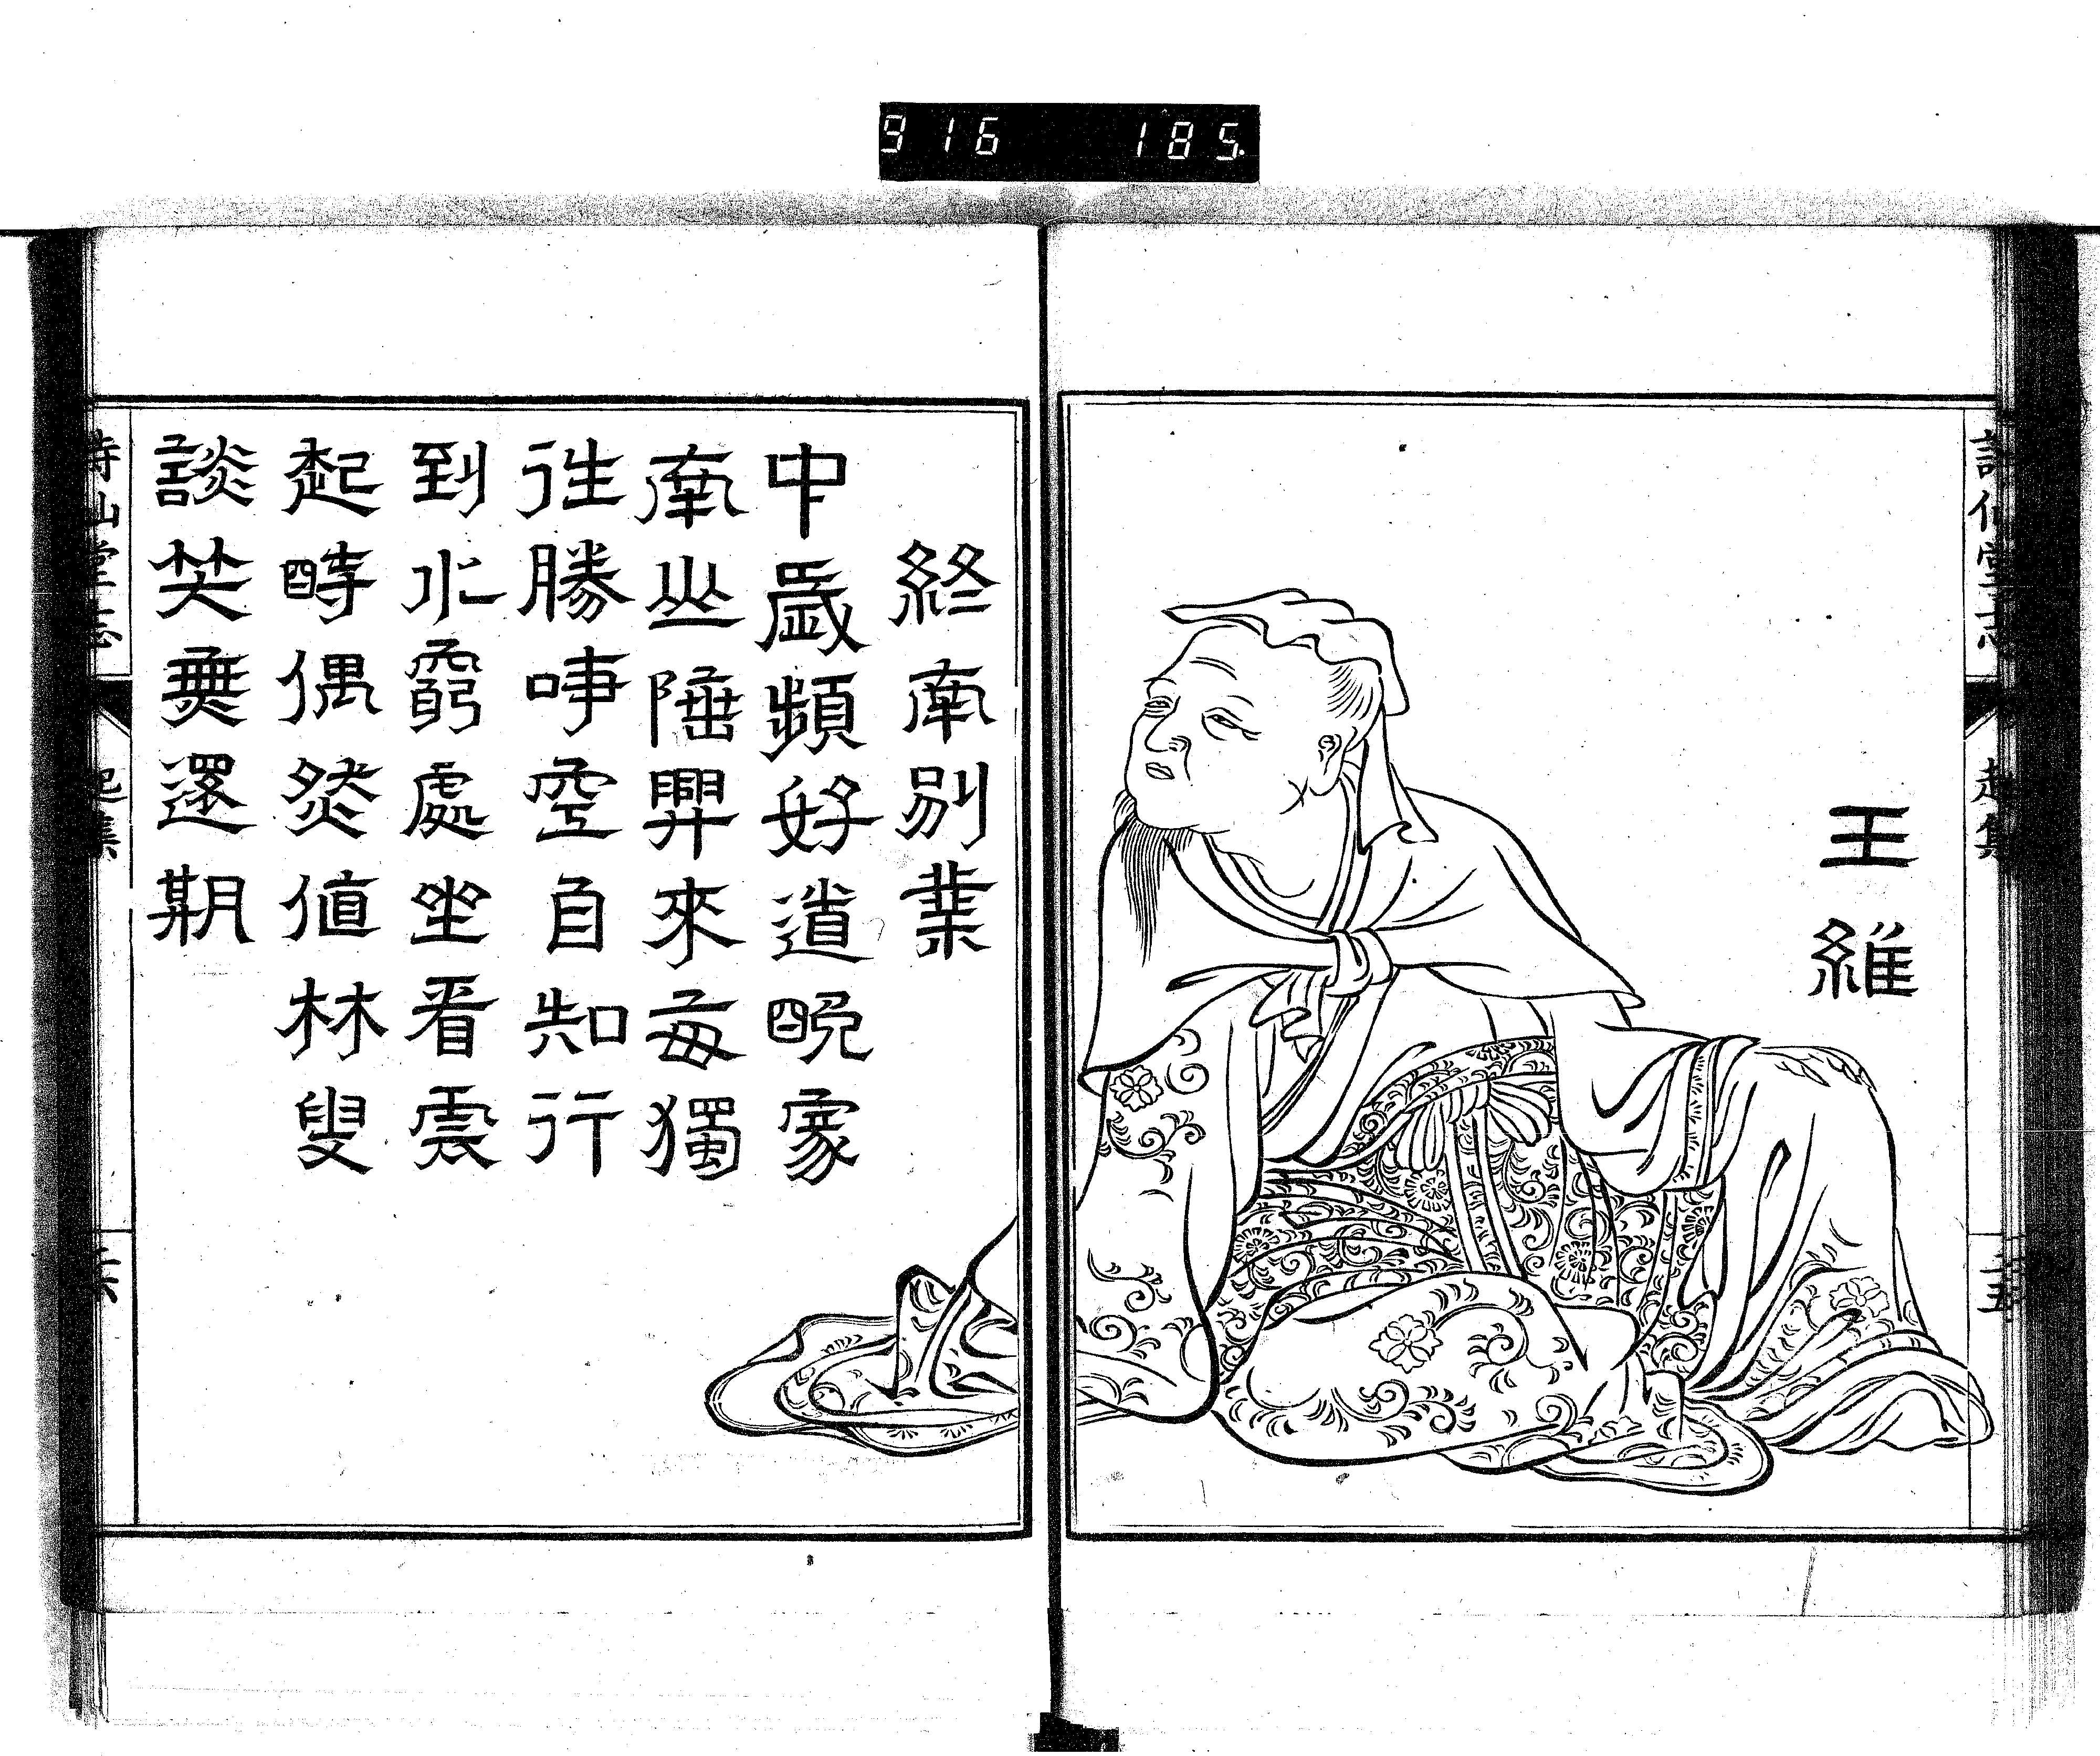 916 185
詩仙堂志
起集
十五
王維
終南別業
中歲頻好道晚家
南山陲興來每獨
往勝事空自知行
到水窮處坐看雲
起時偶然值林叟
談笑乗還期
詩仙堂志
起集